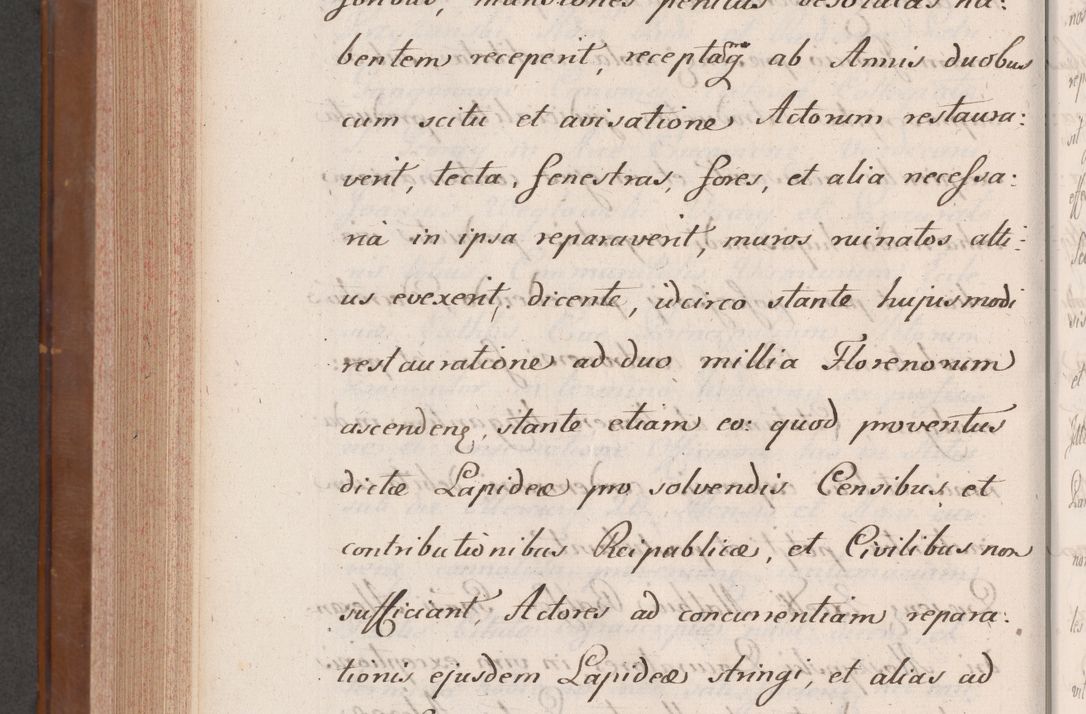 foribus, mansiones penitus desolatas ha:
bentem receperit, receptamq̃ ab Annis duobus
cum scitu et avisatione Actorum restaura:
verit, tecta, fenestras, fores, et alia necessa:
ria in ipsa reparaverit, muros ruinatos alti:
us evexerit, dicente, idcirco stante hujusmodi
restauratione ad duo millia Florenorum
ascendenȩ, stante etiam eo: quod proventus
dictæ Lapideæ pro solvendis Censibus et
contributionibus Reipublicæ, et Civilibus non
sufficiant, Actores ad concurrentiam repara:
tionis ejusdem Lapideæ stringi, et alias ad